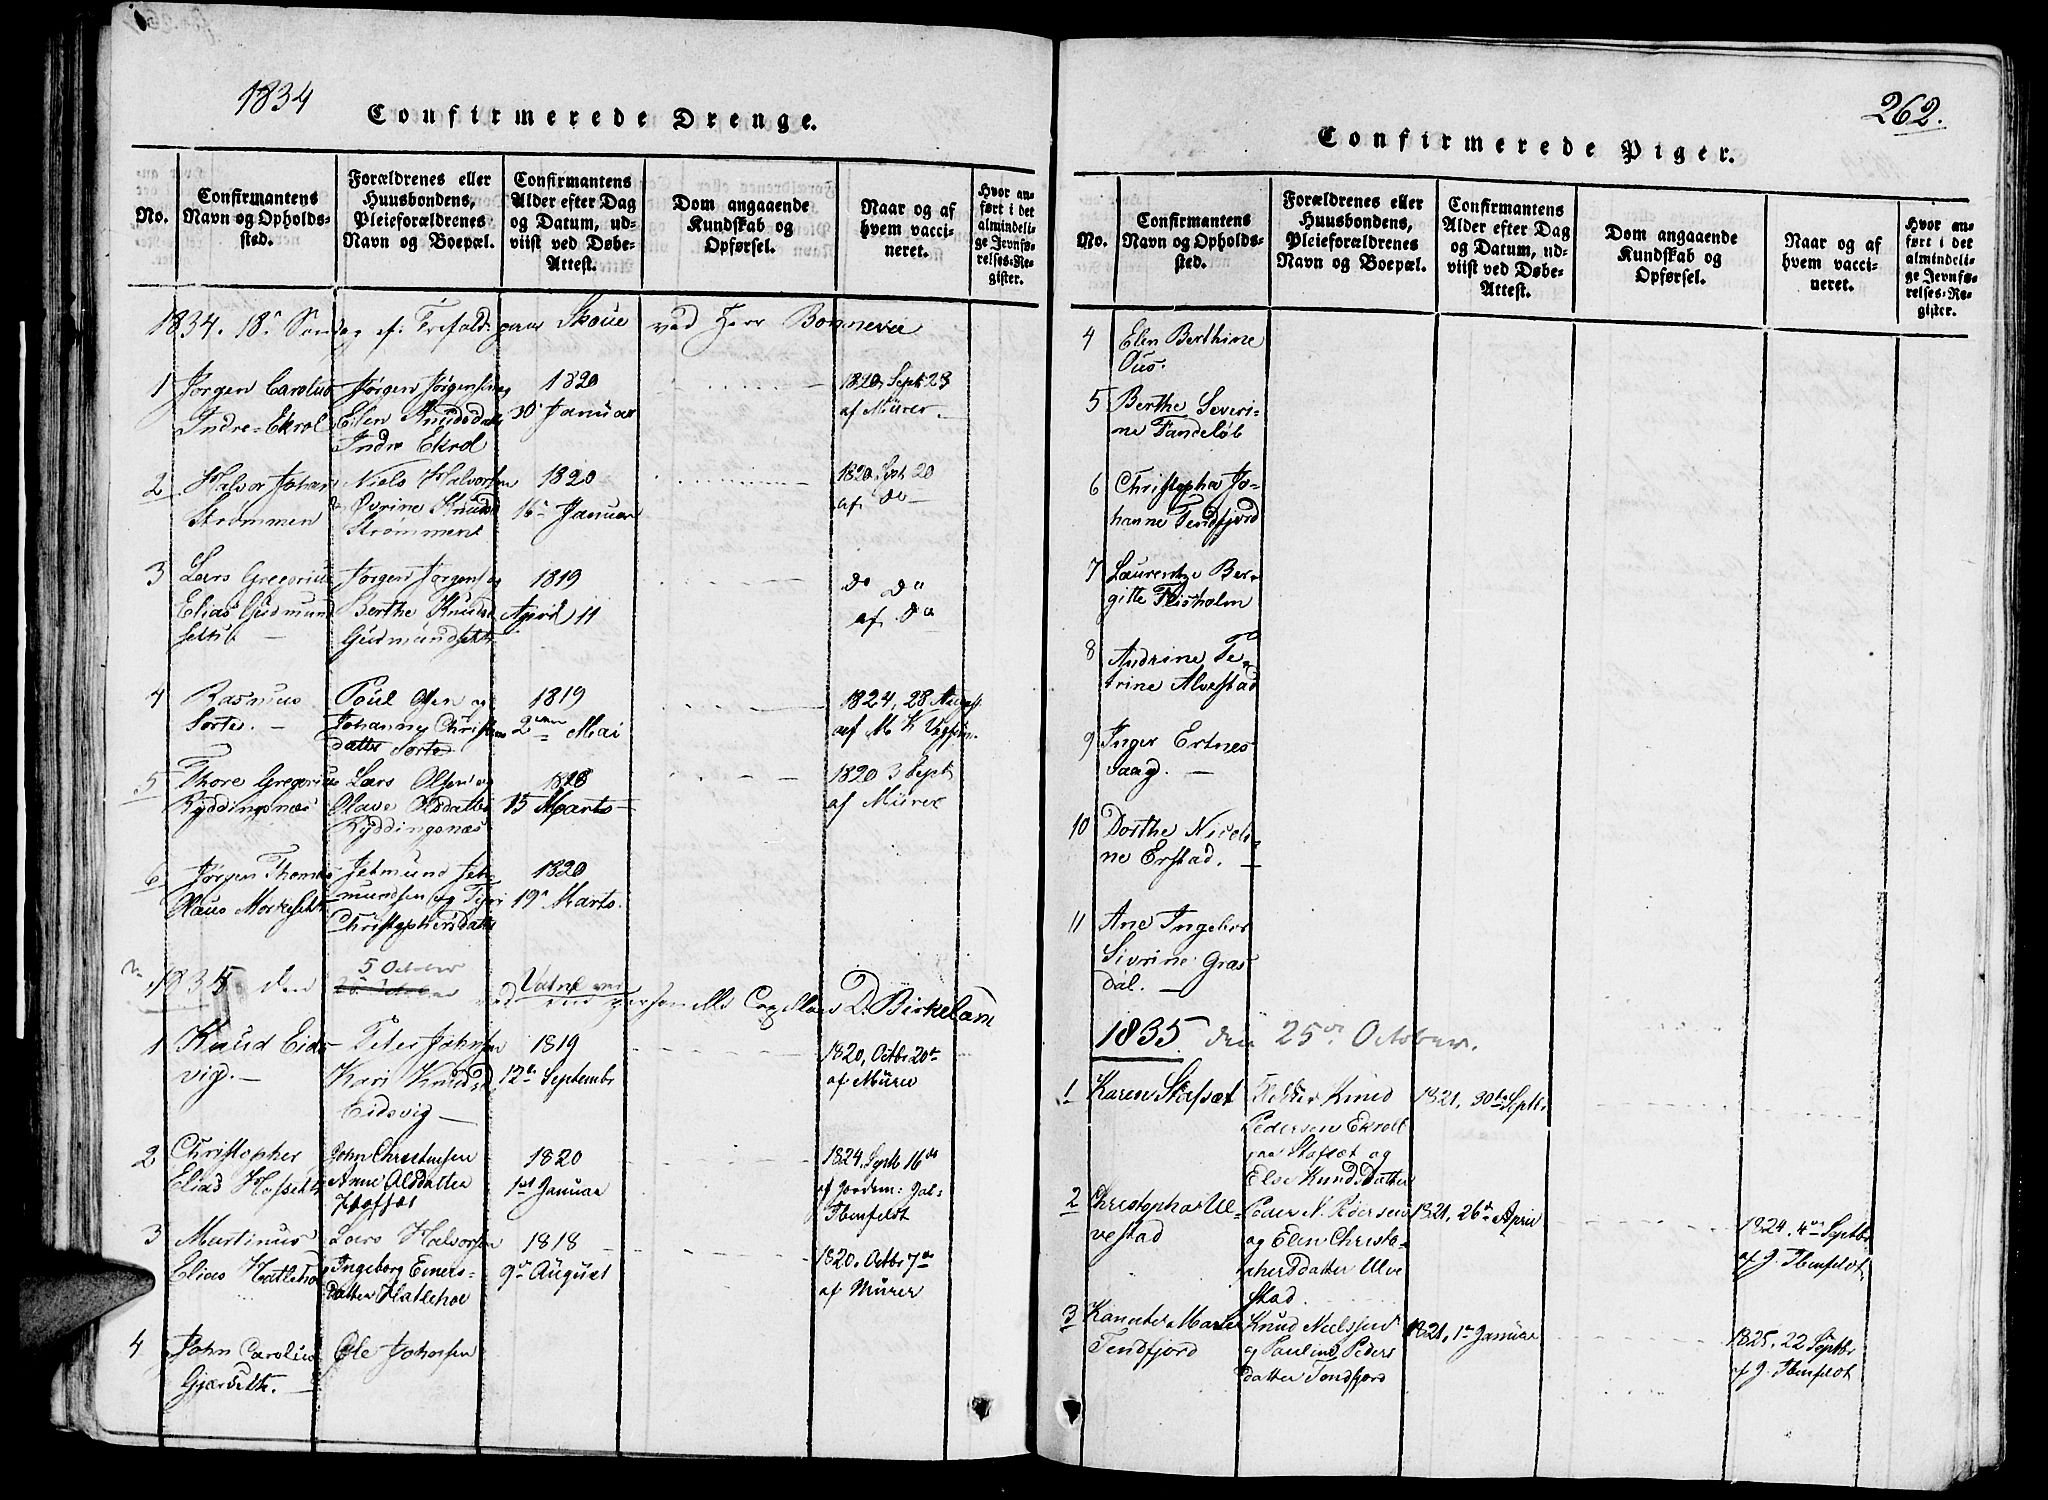 1834
Confirmerede Drenge.
No.
Confirmantens
Navn og Opholds-
sted.
Forældrenes eller
Huusbondens,
Pleieforældrenes
Navn og Boepæl.
Confirmantens
Alder efter Dag
og Datum, ud-
viist ved Døbe-
Attest.
Dom angaaende
Kundskab og
Opførsel.
Naar og af
hvem vacci-
neret.
Hvor an-
ført i det
almindeli-
ge Jevnfø-
relses-Re-
gister.
1834. 18n Søndag ef. Trefold: paa Skoue ved Herr Bonnevie
1
Jørgen Carolus
Indre-Ekrol
Jørgen Jørgensen og
Elen Knudsdatt
Indre Ekrol
1820
30 Januar
1820, Sept 23
af Mürer.
2
Halvor Johan
Strømmen
Niels Halvorsen
Øvrine Knudsd
Strømmen
1820
16n Januar
1820 Sept 20
af do
3
Lars Gregorius
Elias Gudmund
seth
Jørgen Jørgens og
Berthe Knuds
Gudmundseth
1819
April 11
do do
af do
4
Rasmus
Sorte.
Poul Olsen og
Johanne Christens
datter Sorte
1819
2den Mai
1824, 28 August
af M K
5
Thore Gregorius
Ryddingsnæs
Lars Olsen og
Olave Olsdatter
Ryddingsnæs
1820
15 Marts
1820 3 Sept
af Mürer
6
Jørgen Thomas
Claus Morkeseth
Jetmund Jet-
mundsen og
Christophersdatter
1820
19n Marts.
1835 den 5 October Vatne ved
personelle Capellan D. Birkeland
1
Knud Eids-
vig.
Peter Johnsen
Kari Knudsd
Eidsvig
1819
12te Septembr
1820, Octbr 20de
af Mürer
2
Christopher
Elias Hofseth
John Christensen
Anne Olsdatter
Hofset
1820
1st Januar
1824. Sept 16de
af Jordem: Jal-
Ibenfeldt
3
Martinus
Elias Hatlehoe
Lars Halvorsen
Ingeborg Einers-
datter Hatlehoe
1818
9de August
1820. Octbr 7de
af Mürer
4
John Carolius
Gjærseth.
Ole Johnsen
262.
Confirmerede Piger.
No.
Confirmantens
Navn og Opholds-
sted.
Forældrenes eller
Huusbondens,
Pleieforældrenes
Navn og Boepæl.
Confirmantens
Alder efter Dag
og Datum, ud-
viist ved Døbe-
Attest.
Dom angaaende
Kundskab og
Opførsel.
Naar og af
hvem vacci-
neret.
Hvor an-
ført i det
almindeli-
ge Jevnfø-
relses-Re-
gister.
4
Elen Berthine
Aus.
5
Berthe Severi-
ne Tandeløb
6
Christopha Jo-
hanne Tendfjord
7
Laurentze Ber-
gitte Flisholm
8
Andrine Pe-
trine Alvestad
9
Inger Ertnes
vaag.
10
Dorthe Nicoli-
ne Erstad.
11
Ane Ingebor
Sivrine Gras
dal.
1835 den 25de October.
1
Karen Stafsæt
Fatter Knud
Pedersen Ekroll
paa Stafsæt og
Else Knudsdatter
1821, 30te Septbr
2
Christopha Ul-
vestad
Peder N. Pedersen
og Elen Christo-
phersdatter Ulve
stad.
1821, 26de April
1824. 4de Septbr
af J. Ibenfeldt
3
Kanutte Marie
Tendfjord
Knud Nielssen
og Pauline Peders
datter Tendfjord
1821, 1te Januar
1825, 22 Septbr
af J. Ibenfeldt